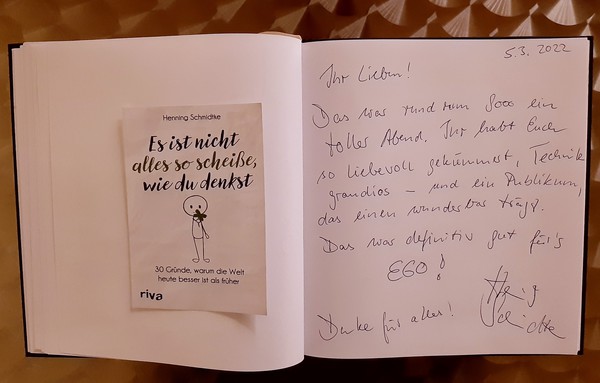 Henning Schmidtke
Es ist nicht
alles so scheiße,
wie du denkst
30 Gründe, warum die Welt
heute besser ist als früher
riva
5.3.2022
Ihr Lieben!
Das war rund rum 8000 ein
tolles Abend. Ihr habt Euch
so liebevoll gekümmert, Technik
grandios – und ein Publikum,
das einen wunderbar trägt.
Das war definitiv gut für's
EGO!
Danke für alles!
Henning
Schmidtke